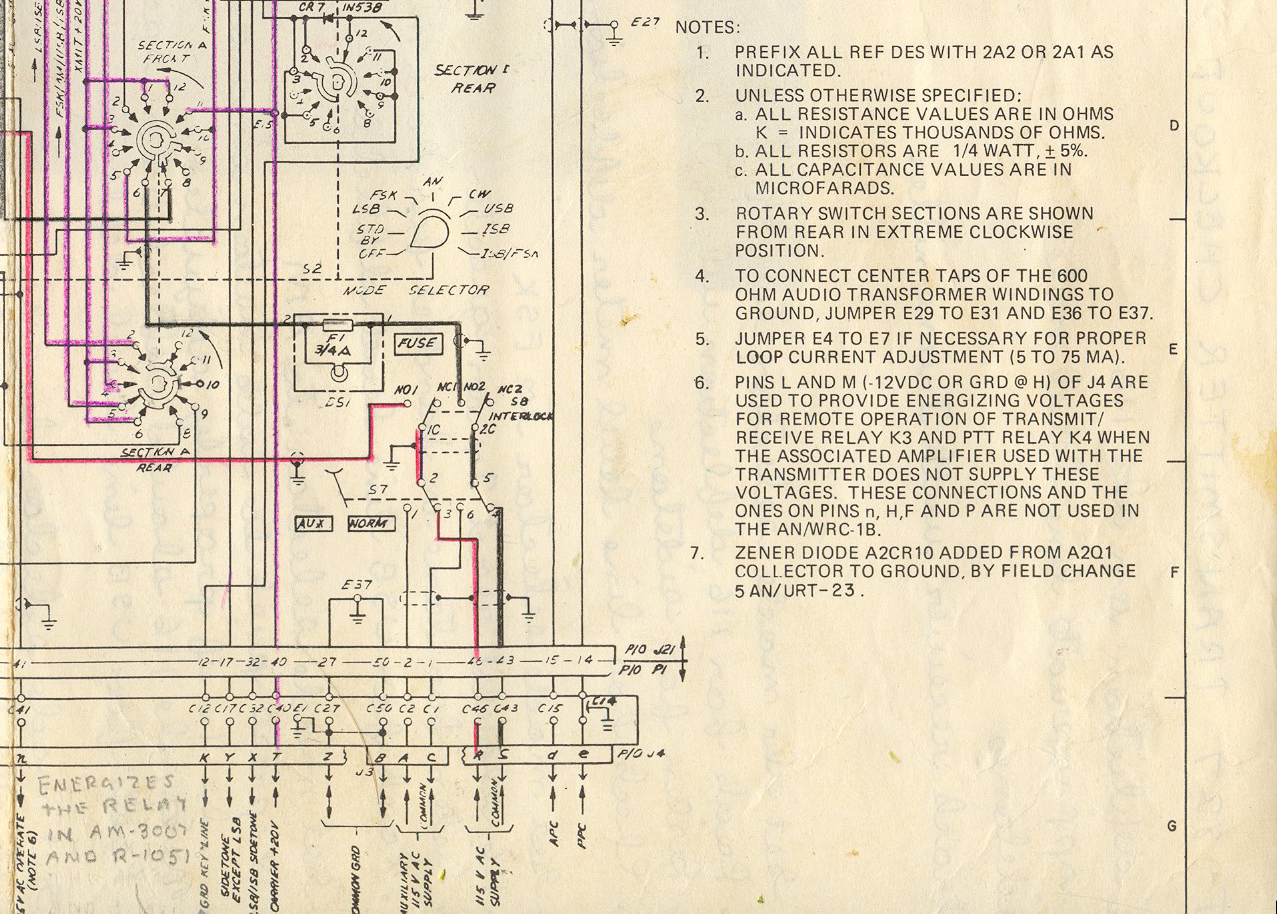 NOTES:
1. PREFIX ALL REF DES WITH 2A2 OR 2A1 AS
INDICATED.
2. UNLESS OTHERWISE SPECIFIED:
a. ALL RESISTANCE VALUES ARE IN OHMS
K = INDICATES THOUSANDS OF OHMS.
b. ALL RESISTORS ARE 1/4 WATT, ± 5%.
c. ALL CAPACITANCE VALUES ARE IN
MICROFARADS.
3. ROTARY SWITCH SECTIONS ARE SHOWN
FROM REAR IN EXTREME CLOCKWISE
POSITION.
4. TO CONNECT CENTER TAPS OF THE 600
OHM AUDIO TRANSFORMER WINDINGS TO
GROUND, JUMPER E29 TO E31 AND E36 TO E37.
5. JUMPER E4 TO E7 IF NECESSARY FOR PROPER
LOOP CURRENT ADJUSTMENT (5 TO 75 MA).
6. PINS L AND M (-12VDC OR GRD @ H) OF J4 ARE
USED TO PROVIDE ENERGIZING VOLTAGES
FOR REMOTE OPERATION OF TRANSMIT/
RECEIVE RELAY K3 AND PTT RELAY K4 WHEN
THE ASSOCIATED AMPLIFIER USED WITH THE
TRANSMITTER DOES NOT SUPPLY THESE
VOLTAGES. THESE CONNECTIONS AND THE
ONES ON PINS n, H,F AND P ARE NOT USED IN
THE AN/WRC-1B.
7. ZENER DIODE A2CR10 ADDED FROM A2Q1
COLLECTOR TO GROUND, BY FIELD CHANGE
5 AN/URT-23.
D
E
F
G
CR7 IN538
E27
SECTION A
FRONT
REAR
E15
XMIT +20V
12
11
10
9
8
6
5
2
3
AM
FSK CW
LSB USB
STD
BY ISB
OFF ISB/FSK
S2
MODE SELECTOR
2 1
F1
3/4A
FUSE
DS1
NO1 NC1 NO2 NC2
S8
INTERLOCK
1C 2C
2 5
SECTION A
REAR
S7
1 3 6 4
AUX NORM
E37
41 12-17-32-40 27 50-2-1 46-43 15-14
P/O J21
P/O P1
C41 C12 C17 C32 C40 E1 C27 C50 C2 C1 C46 C43 C15 C14
n K Y X T Z B A C R S d e
P/O J4
J3
ENERGIZES
THE RELAY
IN AM-3007
AND R-1051
VAC OPERATE
(NOTE 6)
GRD KEY LINE
SIDETONE
EXCEPT LSB
LSB/ISB SIDETONE
CARRIER +20V
COMMON GRD
AUXILIARY
115 V AC
SUPPLY
COMMON
115 V AC
SUPPLY
COMMON
APC
PPC